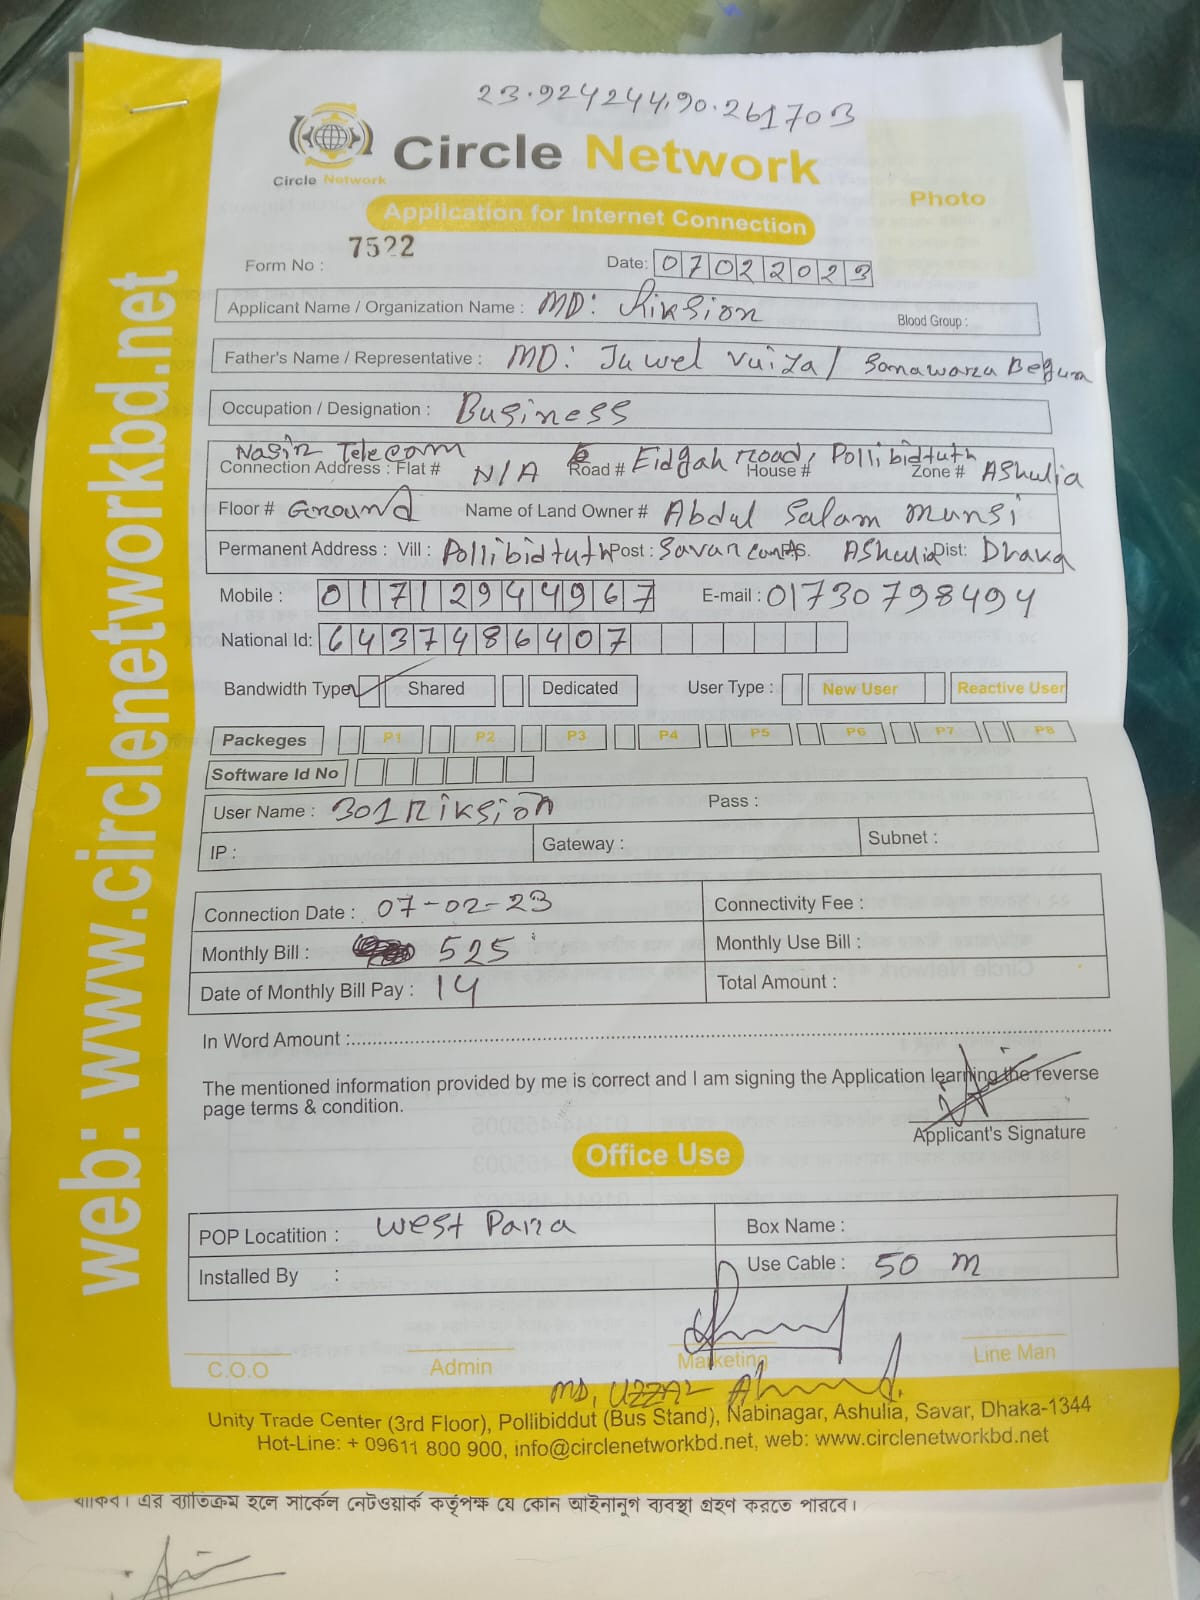 23.924244,90.261703
Circle Network
Circle Network
Photo
Application for Internet Connection
Form No : 7522
Date: 07022023
Applicant Name / Organization Name : MD: Riksion
Blood Group :
Father's Name / Representative : MD: Juwel Vuiya / Sonawara Begum
Occupation / Designation : Business
Nasir Telecom
Connection Address : Flat # N/A Road # Eidgah road, House # Pollibidtuth Zone # AShulia
Floor # Ground Name of Land Owner # Abdul Salam munsi
Permanent Address : Vill : Pollibidtuth Post : Savar P.S. AShulia Dist: Dhaka
Mobile : 01712944967 E-mail : 01730798494
National Id: 6437486407
Bandwidth Type Shared Dedicated User Type : New User Reactive User
Packeges P1 P2 P3 P4 P5 P6 P7 P8
Software Id No
User Name : 301Riksion Pass :
IP : Gateway : Subnet :
Connection Date : 07-02-23 Connectivity Fee :
Monthly Bill : 525 Monthly Use Bill :
Date of Monthly Bill Pay : 14 Total Amount :
In Word Amount :
The mentioned information provided by me is correct and I am signing the Application learning the reverse
page terms & condition.
Applicant's Signature
Office Use
POP Locatition : West Para Box Name :
Installed By : Use Cable : 50 m
C.O.O Admin Marketing Line Man
MD. UZZAL Ahmed.
Unity Trade Center (3rd Floor), Pollibiddut (Bus Stand), Nabinagar, Ashulia, Savar, Dhaka-1344
Hot-Line: + 09611 800 900, info@circlenetworkbd.net, web: www.circlenetworkbd.net
web: www.circlenetworkbd.net
থাকিব। এর ব্যতিক্রম হলে সার্কেল নেটওয়ার্ক কর্তৃপক্ষ যে কোন আইনানুগ ব্যবস্থা গ্রহণ করতে পারবে।